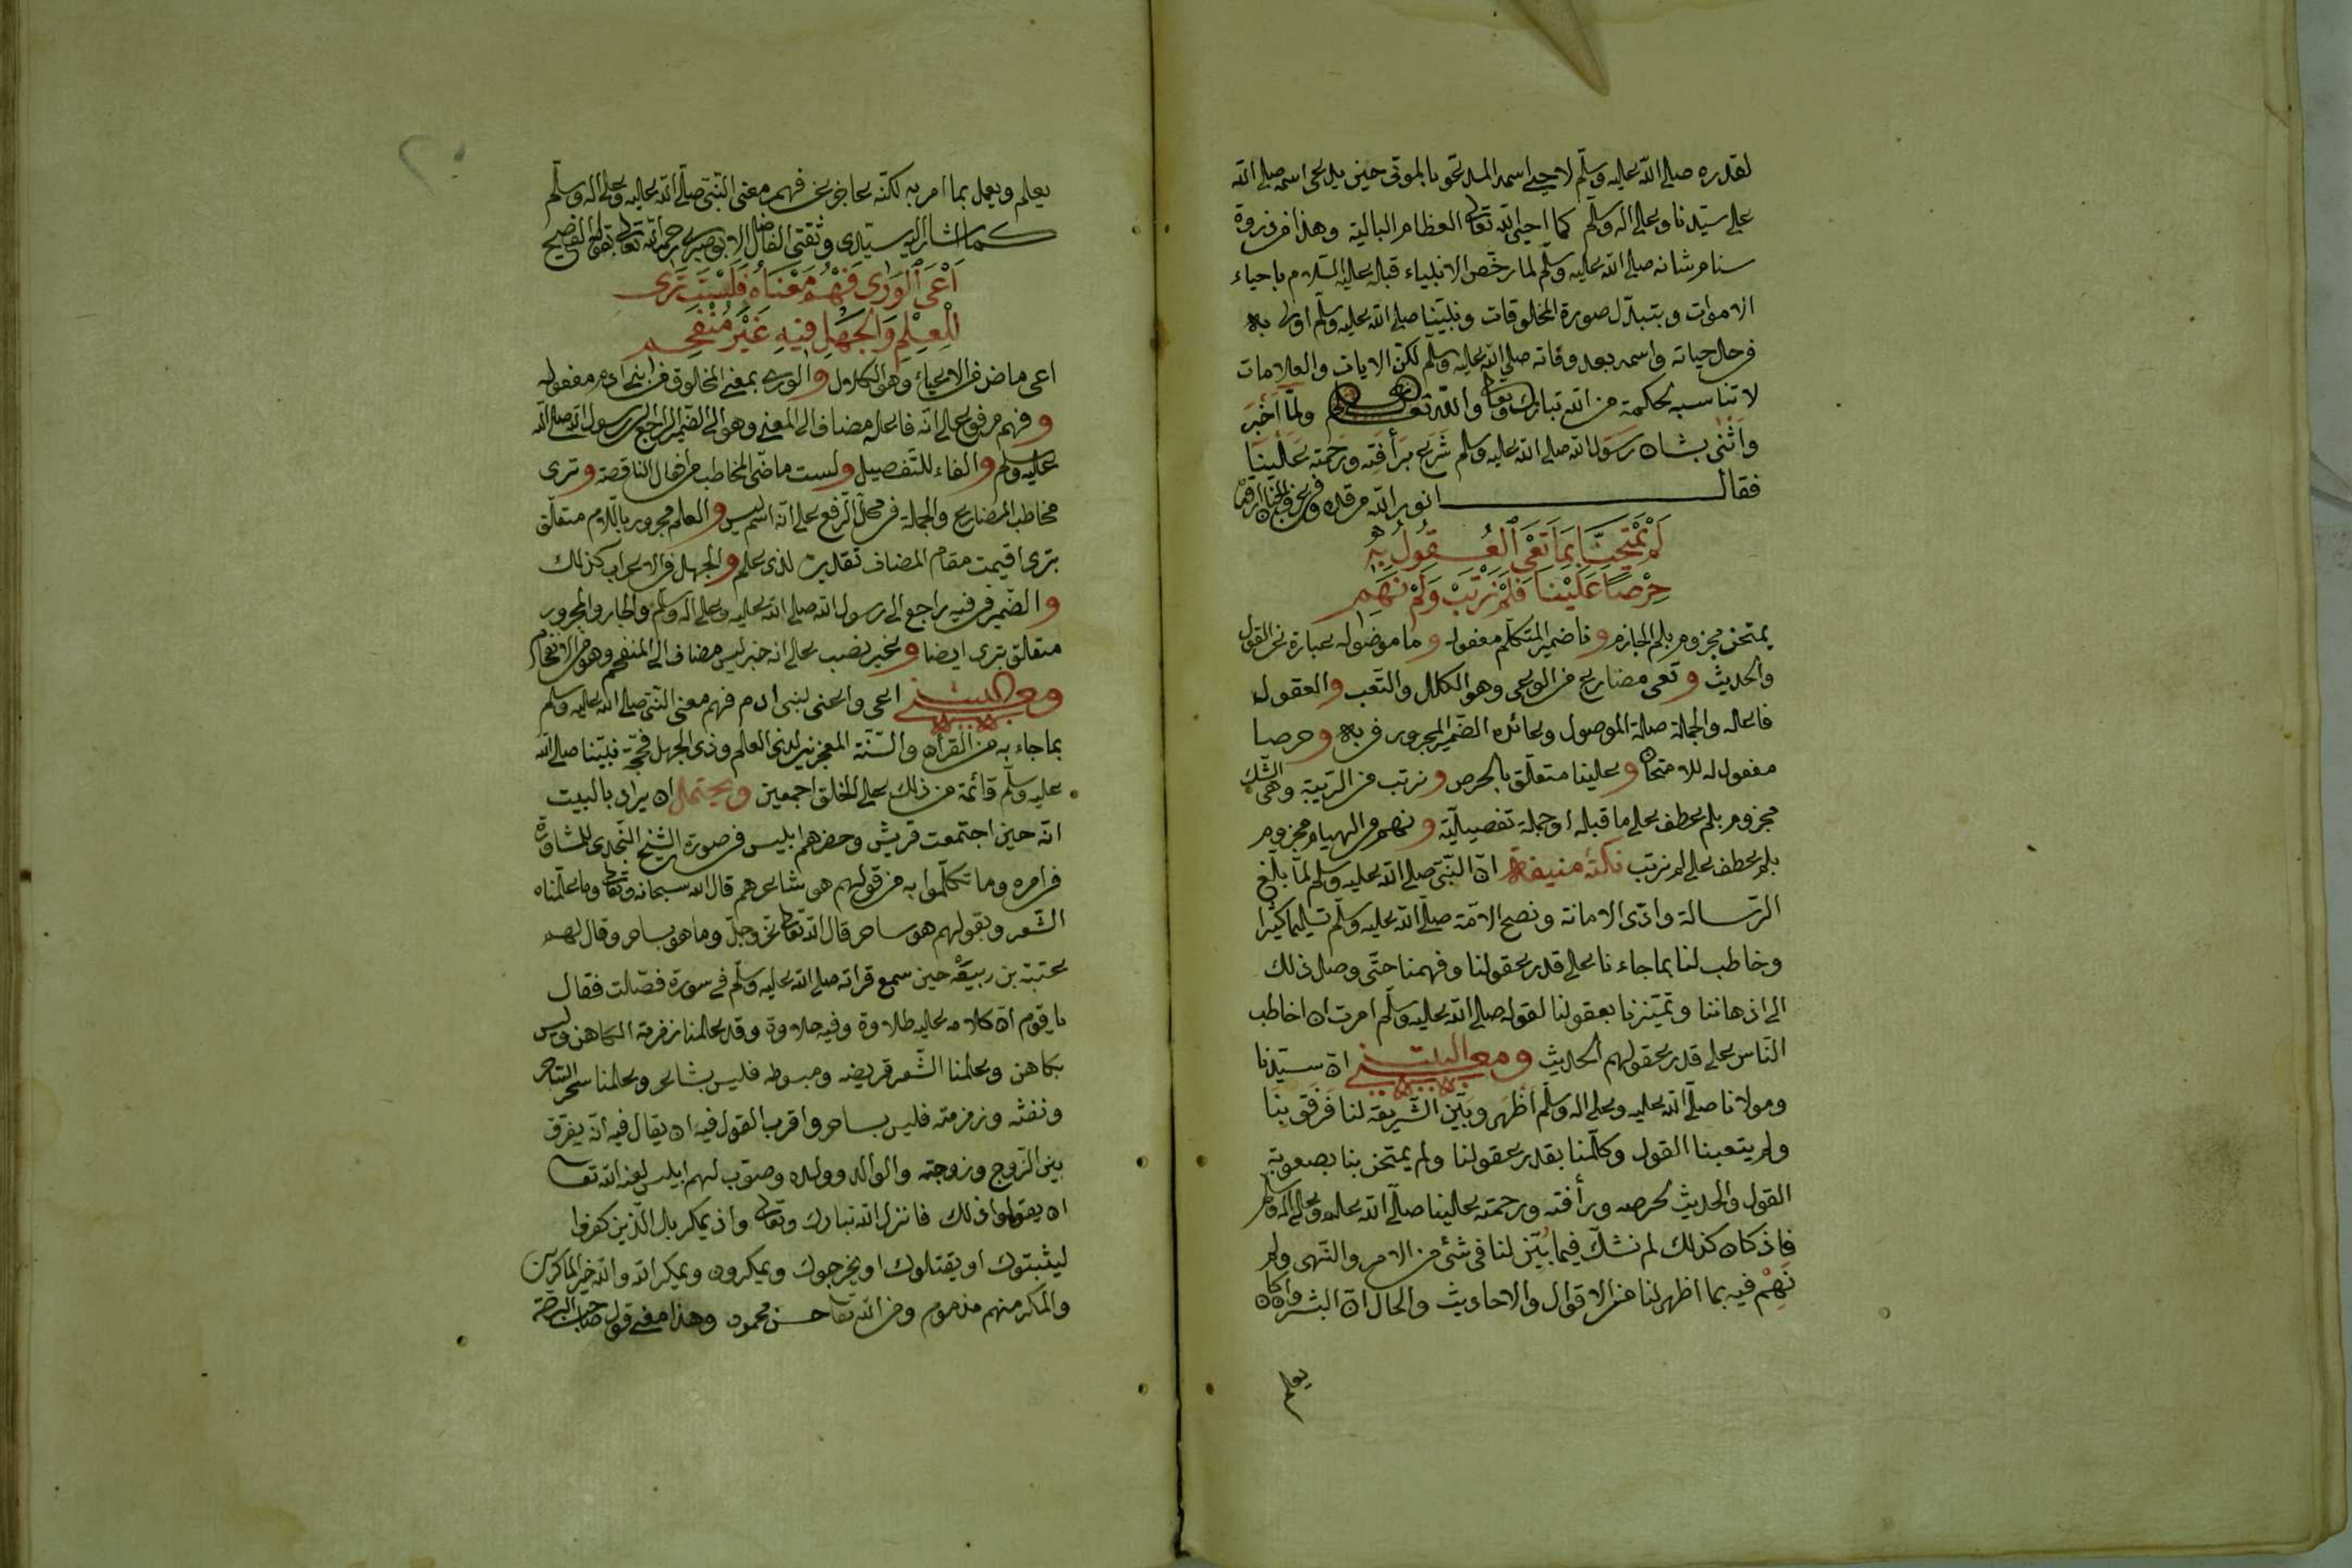 لقدره صلى الله عليه وسلّم لاحيى اسمه المدعو بالموتى حين يدعى اسمه صلى الله
على سيّدنا وعلى اله وسلّم كما احيى الله تعالى العظام البالية وهذا من ذروة
سنام شانه صلى الله عليه وسلّم لما رخّص الانبياء قبله عليه السّلام باحياء
الاموات وبتبدّل صورة المخلوقات ونبيّنا صلى الله عليه وسلّم اولى به
فى حال حياته واسمه بعد وفاته صلى الله عليه وسلّم لكنّ الايات والعلامات
لا تناسبه لحكمة من الله تبارك وتعالى والله تعالى ولمّا أخبر
واثنى بشان رسول الله صلى الله عليه وسلم شرع برأفته ورحمته علينا
فقال انور الله مرقده
لَمْ يَمْتَحِنَّا بِمَا تَعْيَ ٱلْعُقُولُ بِهِ
حِرْصًا عَلَيْنَا فَلَمْ نَرْتَبْ وَلَمْ نَهِمِ
يمتحن مجزوم بلم الجازم و نا ضمير المتكلّم مفعوله و ما موصوله عبارة عن القول
والحديث و تعى مضارع من الوعى وهو الكلال والتّعب والعقول
فاعله والجملة صلة الموصول وعائده الضّمير المجرور فى به و حرصا
مفعول له للامتحان و علينا متعلّق بالحرص و نرتب من الرّيبة وهى الشّك
مجزوم بلم عطف على ما قبله او جملة تفصيليّة و نهم من الهيام مجزوم
بلم عطف على لم نرتب نكتة منيفة انّ النّبى صلى الله عليه وسلم لمّا بلّغ
الرّسالة وادّى الامانة ونصح الامّة صلّى الله عليه وسلّم تسليما كثيرا
وخاطب لنا بما جاءنا على قدر عقولنا وفهمنا حتّى وصل ذلك
الى اذهاننا وتميّزنا بعقولنا لقوله صلى الله عليه وسلّم امرت ان اخاطب
النّاس على قدر عقولهم الحديث ومعنى البيت انّ سيّدنا
ومولانا صلّى الله عليه وعلى اله وسلّم أظهر وبيّن الشّريعة لنا فرفق بنا
ولم يتعبنا القول وكلّمنا بقدر عقولنا ولم يمتحن بنا بصعوبة
القول والحديث لحرصه ورأفته ورحمته علينا صلّى الله عليه وعلى اله وسلم
فاذ كان كذلك لم نشكّ فيما بُيّن لنا فى شئ من الامر والنّهى ولم
نَهِمْ فيه بما اظهر لنا من الاقوال والاحاديث والحال انّ البشر وان كان
يعلم
يعلم ويعمل بما امر به لكنّه عاجز عن فهم معنى النّبى صلّى الله عليه وعلى اله وسلّم
كما اشار اليه سيّدى وثقتى الفاضل الابوصيرى رحمه الله تعالى بقوله الفصيح
اَعْيَ ٱلْوَرٰى فَهْمُ مَعْنَاهُ فَلَسْتَ تَرٰى
لِلْعِلْمِ وَالْجَهْلِ فِيهِ غَيْرَ مُنْفَحِمِ
اعى ماض من الاعياء وهو الكلال و الورى بمعنى المخلوق من ابنى ادم مفعوله
و فهم مرفوع على انّه فاعله مضاف الى المعنى وهو الى الضّمير الراجع الى رسول الله صلى الله
عليه وسلم و الفاء للتّفصيل و لست ماضى المخاطب من افعال الناقصة و ترى
مخاطب المضارع والجملة فى محلّ الرّفع على انّه اسم ليس و العلم مجرور باللّام متعلّق
بترى اقيمت مقام المضاف تقديره لذى علم و الجهل فى الاعراب كذلك
و الضّمير فى فيه راجع الى رسول الله صلى الله عليه وعلى اله وسلّم والجار والمجرور
متعلّق بترى ايضا و غير نصب على انه خبر ليس مضاف الى المنفحم وهو من الانفحام
ومعنى البيت اعى واعنى لبنى ادم فهم معنى النّبى صلى الله عليه وسلم
بما جاء به من القرأن والسّنّة المعجزين لذى العلم وذى الجهل فحجّة نبيّنا صلى الله
عليه وسلّم قائمة من ذلك على الخلق اجمعين ويحتمل ان يراد بالبيت
انّه حين اجتمعت قريش وحضرهم ابليس فى صورة الشّيخ النّجدى للمشاورة
فى امره وما تكلّموا به من قولهم هو شاعرهم قال الله سبحانه وتعالى وما علّمناه
الشّعر وبقولهم هو ساحر قال الله تعالى عزّ وجلّ وما هو بساحر وقال لهم
عتبة بن ربيعة حين سمع قراته صلى الله عليه وسلّم فى سورة فصّلت فقال
يا قوم انّ كلامه عليه طلاوة وفيه حلاوة وقد علمنا زفرة الكاهن وليس
بكاهن وعلمنا الشّعر قريضه ومبسوطه فليس بشاعر وعلمنا سحر الساحر
ونفثه وزمزمته فليس بساحر واقرب القول فيه ان يقال فيه انّه يفرّق
بين الزّوج وزوجته والوالد وولده وصوّب لهم ابليس لعنه الله تعا
ان يقولوا ذلك فانزل الله تبارك وتعالى واذ يمكر بك الّذين كفروا
ليثبتوك او يقتلوك او يخرجوك ويمكرون ويمكر الله والله خير الماكرين
والمكر منهم مذموم ومن الله تعالى حسن محمود وهذا معنى قول صاحب البرءة